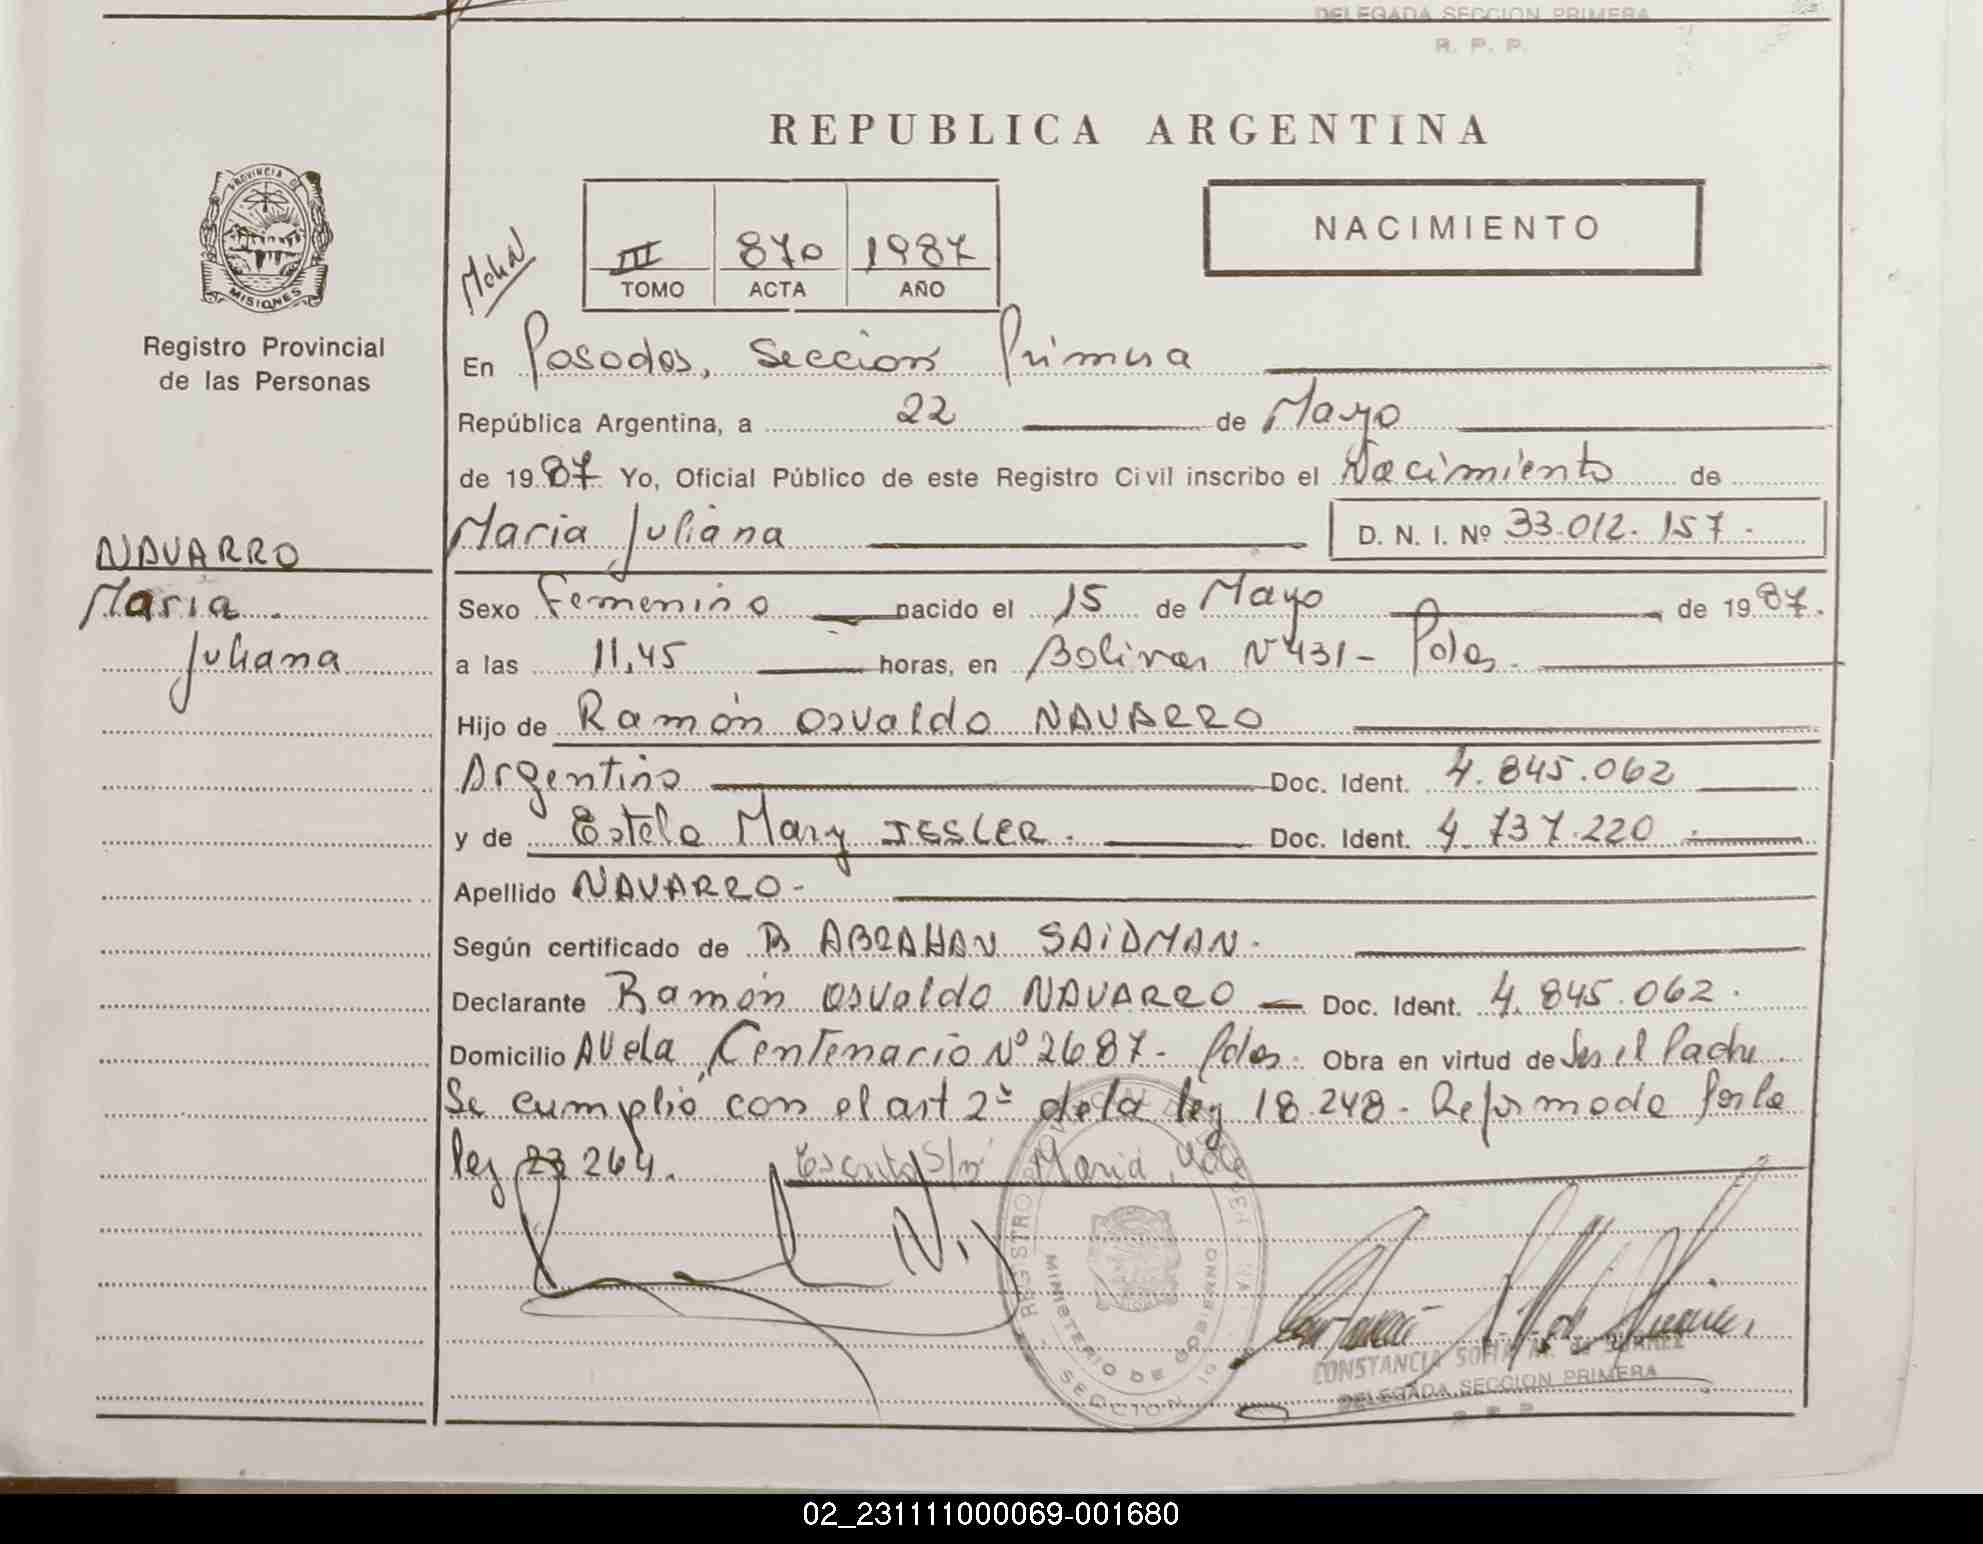 DELEGADA SECCION PRIMERA
R. P. P.
REPUBLICA ARGENTINA
PROVINCIA DE
MISIONES
Registro Provincial
de las Personas
III 870 1987
TOMO ACTA AÑO
NACIMIENTO
En Posadas, Sección Primera
República Argentina, a 22 de Mayo
de 1987 Yo, Oficial Público de este Registro Civil inscribo el Nacimiento de
Maria Juliana D. N. I. Nº 33.012.157.
NAVARRO
Maria
Juliana
Sexo Femenino nacido el 15 de Mayo de 1987.
a las 11,45 horas, en Bolivar Nº 431- Pdas.
Hijo de Ramón Osvaldo NAVARRO
Argentino Doc. Ident. 4.845.062
y de Estela Mary IESLER. Doc. Ident. 4.737.220
Apellido NAVARRO-
Según certificado de Dr ABRAHAN SAIDMAN.
Declarante Ramón Osvaldo NAVARRO Doc. Ident. 4.845.062.
Domicilio Avda Centenario Nº 2687- Pdas. Obra en virtud de Ser el Padre
Se cumplió con el art 2º de la ley 18.248- Reformada por la
ley 23.264. Escrito S/r Maria, Vale
REGISTRO
MINISTERIO DE GOBIERNO
SECCION 1º
CONSTANCIA SOFIA M. de SUAREZ
DELEGADA SECCION PRIMERA
R. P. P.
02_231111000069-001680